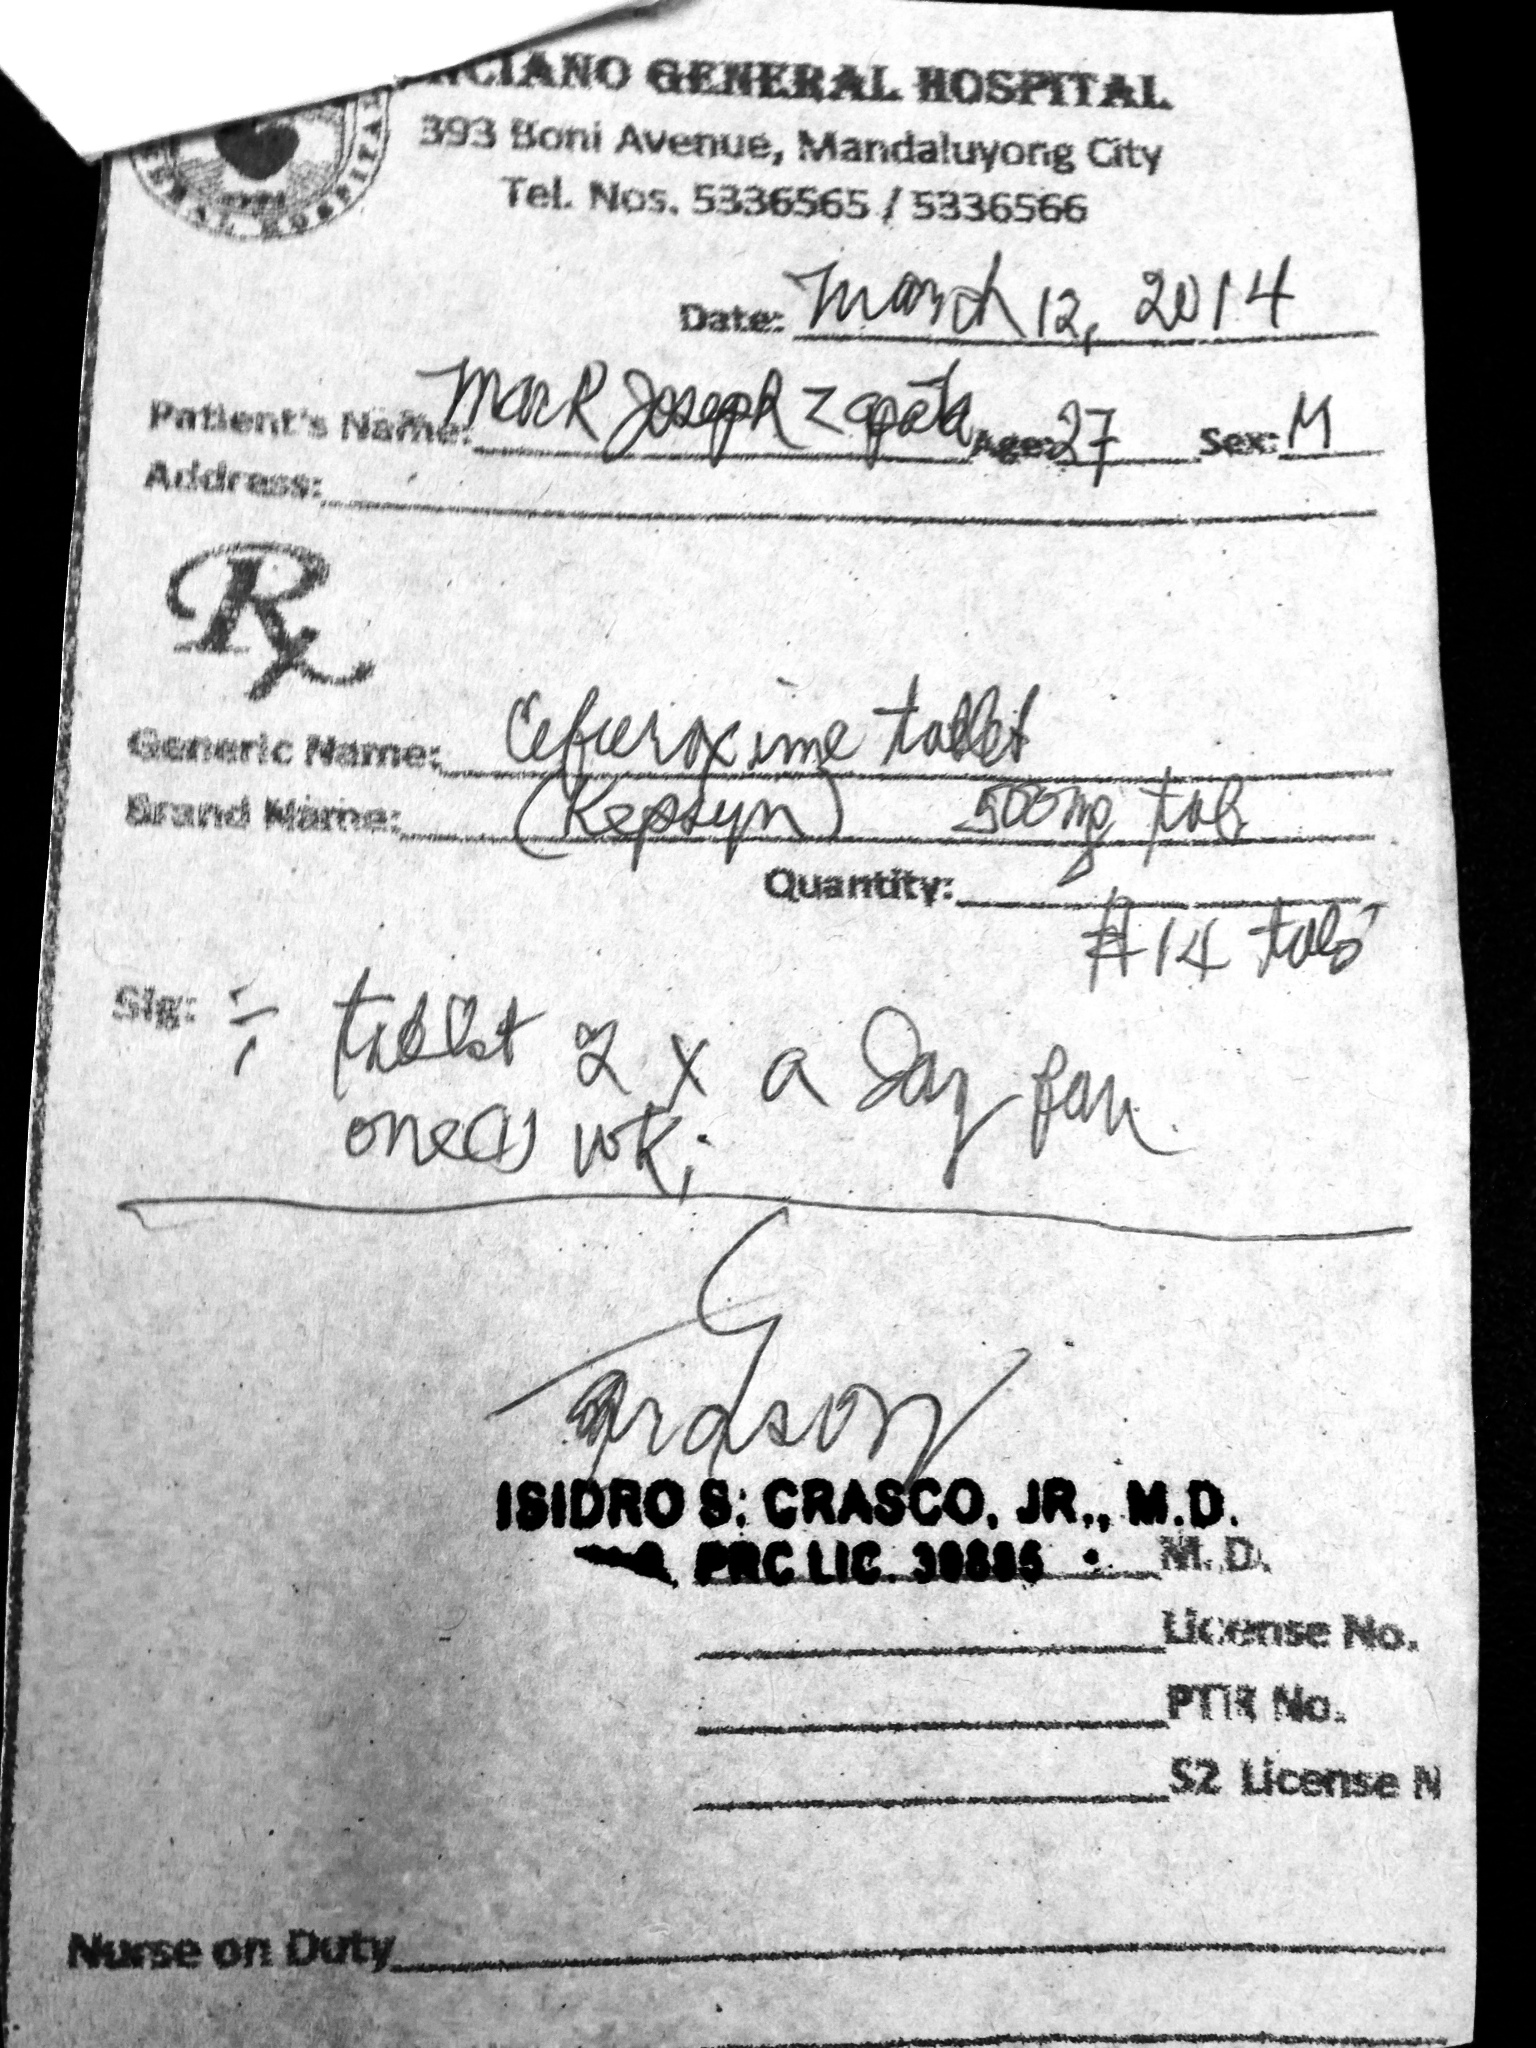 GENERAL HOSPITAL
393 Boni Avenue, Mandaluyong City
Tel. Nos. 5336565 / 5336566
Date: March 12, 2014
Patient's Name: Mark Joseph Zapata Age: 27 Sex: M
Address:
Rx
Generic Name: Cefuroxime tablet
Brand Name: (Kepsyn) 500mg tab
Quantity:
#14 tabs
Sig: tablet 2 x a day for
one(1) wk;
ISIDRO S. CRASCO, JR., M.D.
PRC LIC. M.D.
License No.
PTR No.
S2 License N
Nurse on Duty